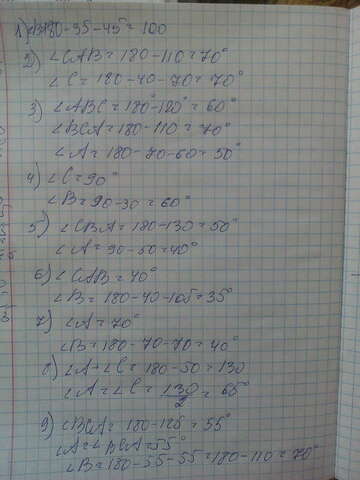 1) ∠B=180-35-45°=100
2) ∠CAB=180-110=70°
∠C=180-40-70=70°
3) ∠ABC=180°-120°=60°
∠BCA=180-110=70°
∠A=180-70-60=50°
4) ∠C=90°
∠B=90-30=60°
5) ∠CBA=180-130=50°
∠A=90-50=40°
6) ∠CAB=40°
∠B=180-40-105=35°
7) ∠A=70°
∠B=180-70-70=40°
8) ∠A+∠C=180-50=130
∠A=∠C=130/2=65°
9) ∠BCA=180-125=55°
∠A=∠BCA=55°
∠B=180-55-55=180-110=70°